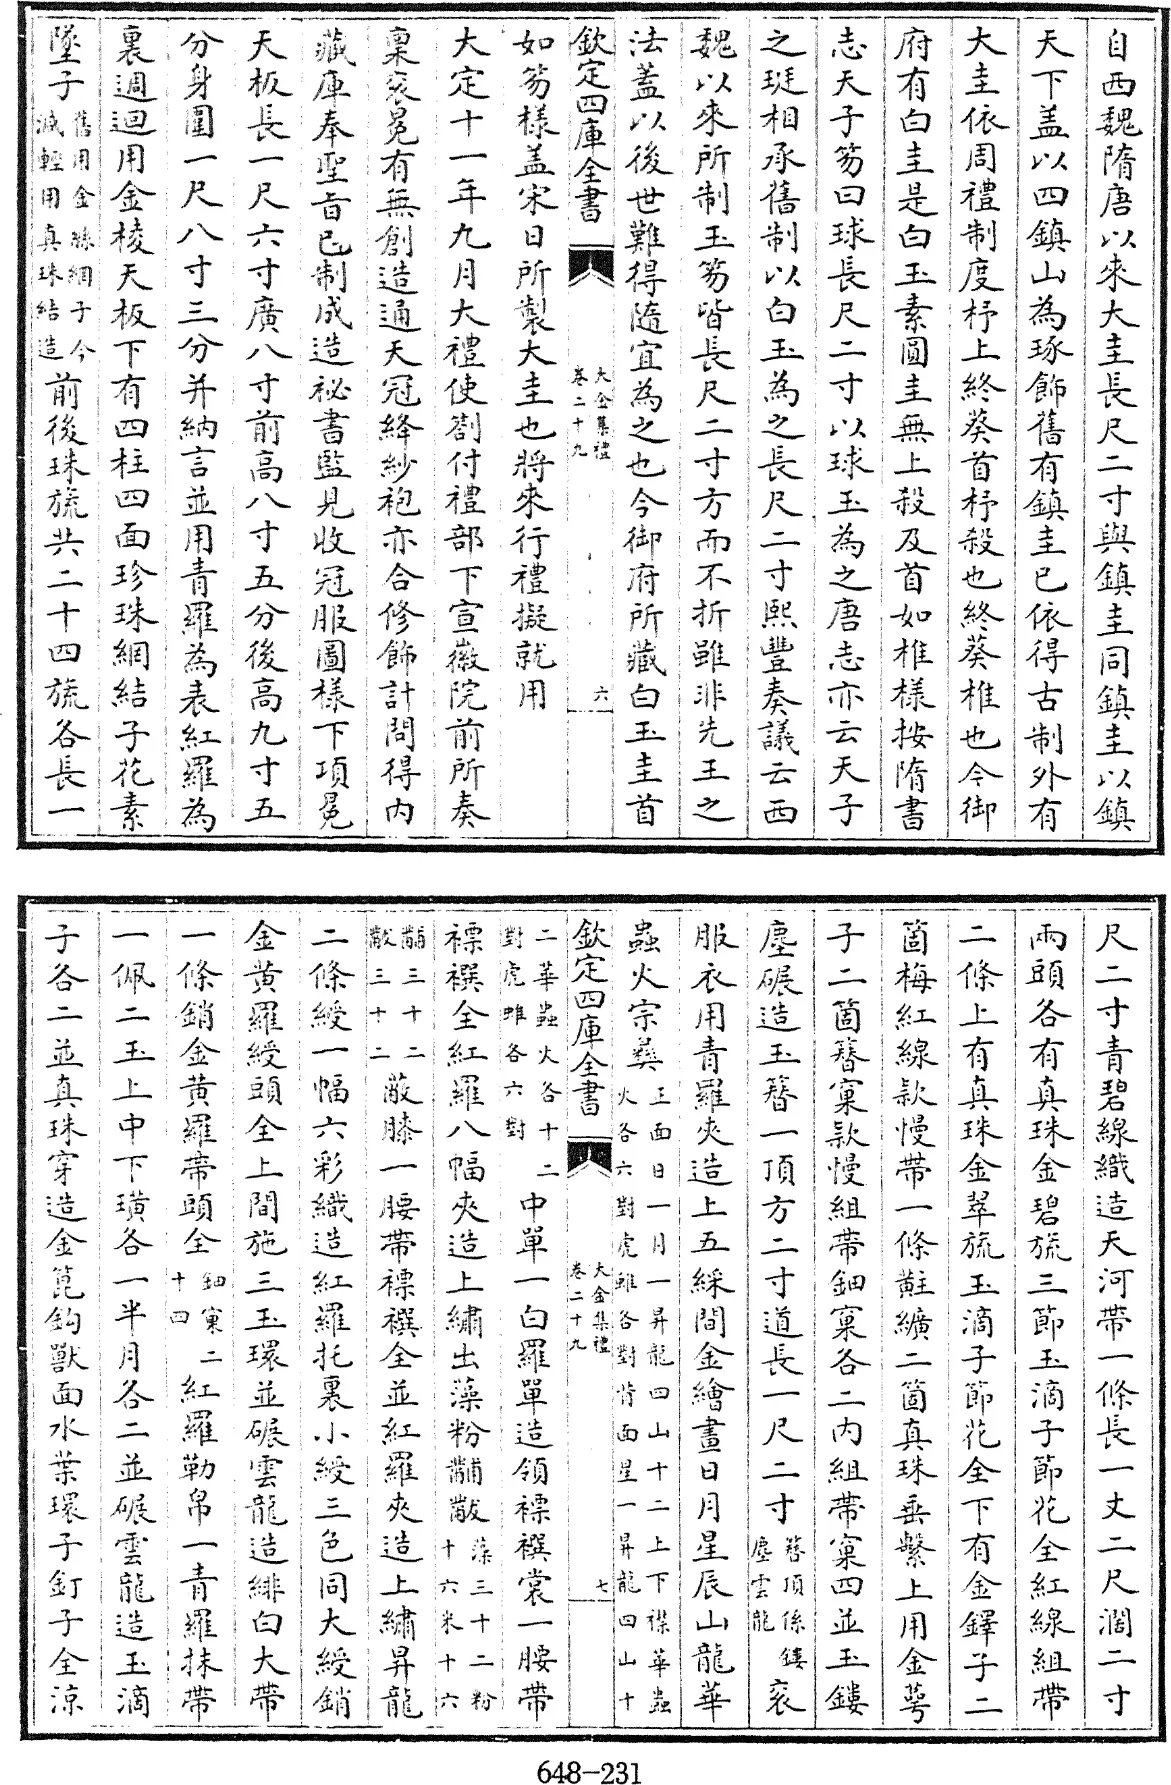 自西魏隋唐以來大圭長尺二寸與鎮圭同鎮圭以鎮
天下蓋以四鎮山為琢飾舊有鎮圭已依得古制外有
大圭依周禮制度杼上終葵首杼殺也終葵椎也今御
府有白圭是白玉素圓圭無上殺及首如椎樣按隋書
志天子笏曰球長尺二寸以球玉為之唐志亦云天子
之珽相承舊制以白玉為之長尺二寸熙豐奏議云西
魏以來所制玉笏皆長尺二寸方而不折雖非先王之
法蓋以後世難得隨宜為之也今御府所藏白玉圭首
欽定四庫全書
大金集禮
卷二十九
六
如笏樣蓋宋日所製大圭也將來行禮擬就用
大定十一年九月大禮使劄付禮部下宣徽院前所奏
稟衮冕有無創造通天冠絳紗袍亦合修飾計問得内
藏庫奉聖旨已制成造祕書監見收冠服圖樣下項冕
天板長一尺六寸廣八寸前高八寸五分後高九寸五
分身圍一尺八寸三分并納言並用青羅為表紅羅為
裏週迴用金棱天板下有四柱四面珍珠網結子花素
墜子舊用金絲網子今減輕用真珠結造前後珠旒共二十四旒各長一
尺二寸青碧線織造天河帶一條長一丈二尺濶二寸
兩頭各有真珠金碧旒三節玉滴子節花全紅線組帶
二條上有真珠金翠旒玉滴子節花全下有金鐸子二
箇梅紅線款慢帶一條黈纊二箇真珠垂繫上用金萼
子二箇簪窠款慢組帶鈿窠各二内組帶窠四並玉鏤
塵碾造玉簪一頂方二寸道長一尺二寸簪頂係鏤塵雲龍衮
服衣用青羅夾造上五綵間金繪畫日月星辰山龍華
蟲火宗彝正面日一月一昇龍四山十二上下襟華蟲火各六對虎蜼各對背面星一昇龍四山十
欽定四庫全書
大金集禮
卷二十九
七
二華蟲火各十二對虎蜼各六對中單一白羅單造領褾襈裳一腰帶
褾襈全紅羅八幅夾造上繡出藻粉黼黻藻三十二粉十六米十六
黼三十二黻三十二蔽膝一腰帶褾襈全並紅羅夾造上繡昇龍
二條綬一幅六彩織造紅羅托裏小綬三色同大綬銷
金黄羅綬頭全上間施三玉環並碾雲龍造緋白大帶
一條銷金黄羅帶頭全鈿窠二十四紅羅勒帛一青羅抹帶
一佩二玉上中下璜各一半月各二並碾雲龍造玉滴
子各二並真珠穿造金篦鈎獸面水葉環子釘子全涼
648-231